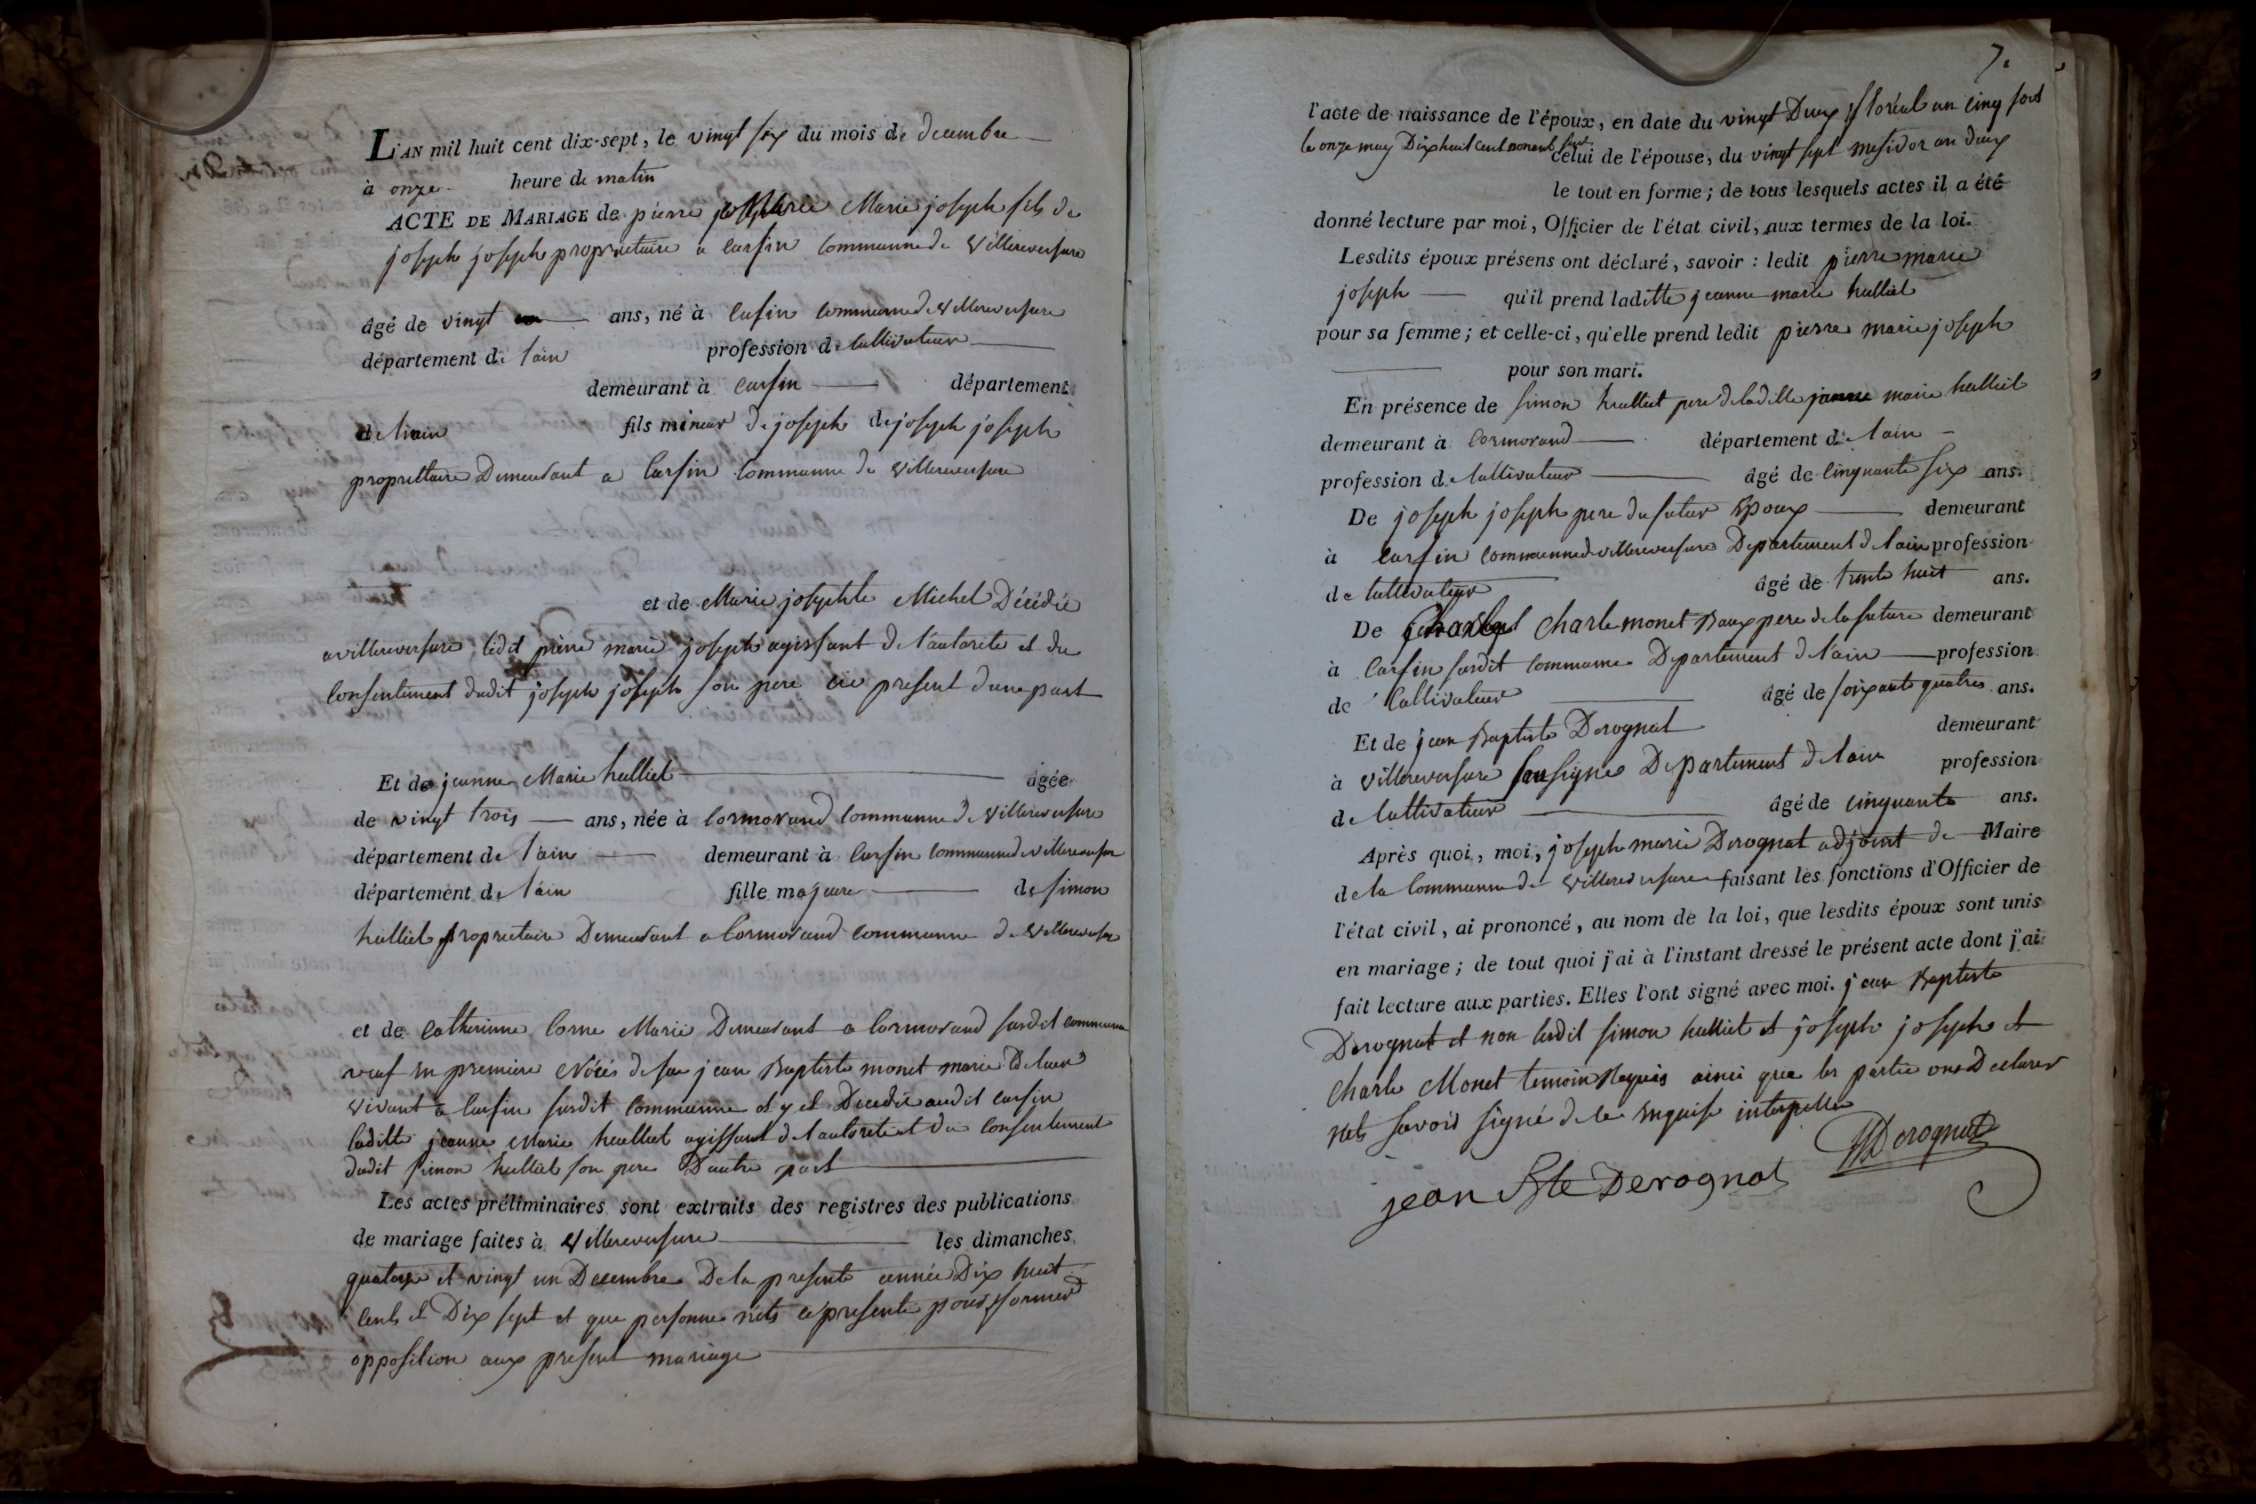 L'AN mil huit cent dix-sept, le vingt six du mois de decembre
à onze heure de matin
ACTE DE MARIAGE de pierre Marie joseph fils de
joseph joseph proprietaire a carfin commune de Villereversure
âgé de vingt ans, né à Cafin commune de Villereversure
département de lain profession de Cultivateur
demeurant à Carfin département
de l'ain fils mineur de joseph de joseph joseph
proprietaire Demeurant a Carfin Commune de Villereversure
et de Marie josephte Michel Décédée
a villereversure ledit pierre marie joseph agissant de l'autorite et du
Consentement dudit joseph joseph son pere ici present d'une part
Et de jeanne Marie hulliet âgée
de vingt trois ans, née à Cormorand Commune de Villereversure
département de l'ain demeurant à Carfin Commune de villereversure
département de l'ain fille majeure de simon
hulliet proprietaire Demeurant a Cormorand commune de Villereversure
et de Catherinne Corne Marie Demeurant a Cormorand susdit commune
veuf en premiere Nocés de feu jean Baptiste monet marie de leur
vivant a Carfin susdit Commune et y est Décédé audit carfin
laditte jeanne Marie hulliet agissant de l'autorite et du Consentement
dudit simon hulliet son pere D'autre part
Les actes préliminaires sont extraits des registres des publications
de mariage faites à Villereversure les dimanches
quatorze et vingt un Decembre De la presente année Dix huit
Cents et Dix sept et que personne nets ce presente pour former
opposition aux present mariage
7.
l'acte de naissance de l'époux, en date du vingt Deux floréal an cinq soit
le onze may Dix huit cent nonent sept
celui de l'épouse, du vingt sept mesidor an deux
le tout en forme; de tous lesquels actes il a été
donné lecture par moi, Officier de l'état civil, aux termes de la loi.
Lesdits époux présens ont déclaré, savoir : ledit pierre marie
joseph qu'il prend laditte jeanne marie hulliet
pour sa femme; et celle-ci, qu'elle prend ledit pierre marie joseph
pour son mari.
En présence de simon hulliet pere de laditte jeanne marie hulliet
demeurant à Cormorand département de l'ain
profession de Cultivateur âgé de Cinquante six ans.
De joseph joseph pere du futur Epoux demeurant
à Carfin commune de villereversure Departement de l'ain profession
de Cultivateur âgé de trente huit ans.
De Charle monet Baux pere de la future demeurant
à Carfin susdit commune Departement de l'ain profession
de Cultivateur âgé de soixante quatres ans.
Et de jean Baptiste Derognat demeurant
à Villereversure sousigné Departement de l'ain profession
de Cultivateur âgé de cinquante ans.
Après quoi, moi, joseph marie Derognat adjoint de Maire
de la Commune de Villereversure faisant les fonctions d'Officier de
l'état civil, ai prononcé, au nom de la loi, que lesdits époux sont unis
en mariage; de tout quoi j'ai à l'instant dressé le présent acte dont j'ai
fait lecture aux parties. Elles l'ont signé avec moi. jean Baptiste
Derognat et non ledit simon hulliet et joseph joseph et
Charle Monet temoin Requis ainci que les partie ons Declarer
nets savoir signé de ce enquise interpelle
Derognat
jean Bte Derognat